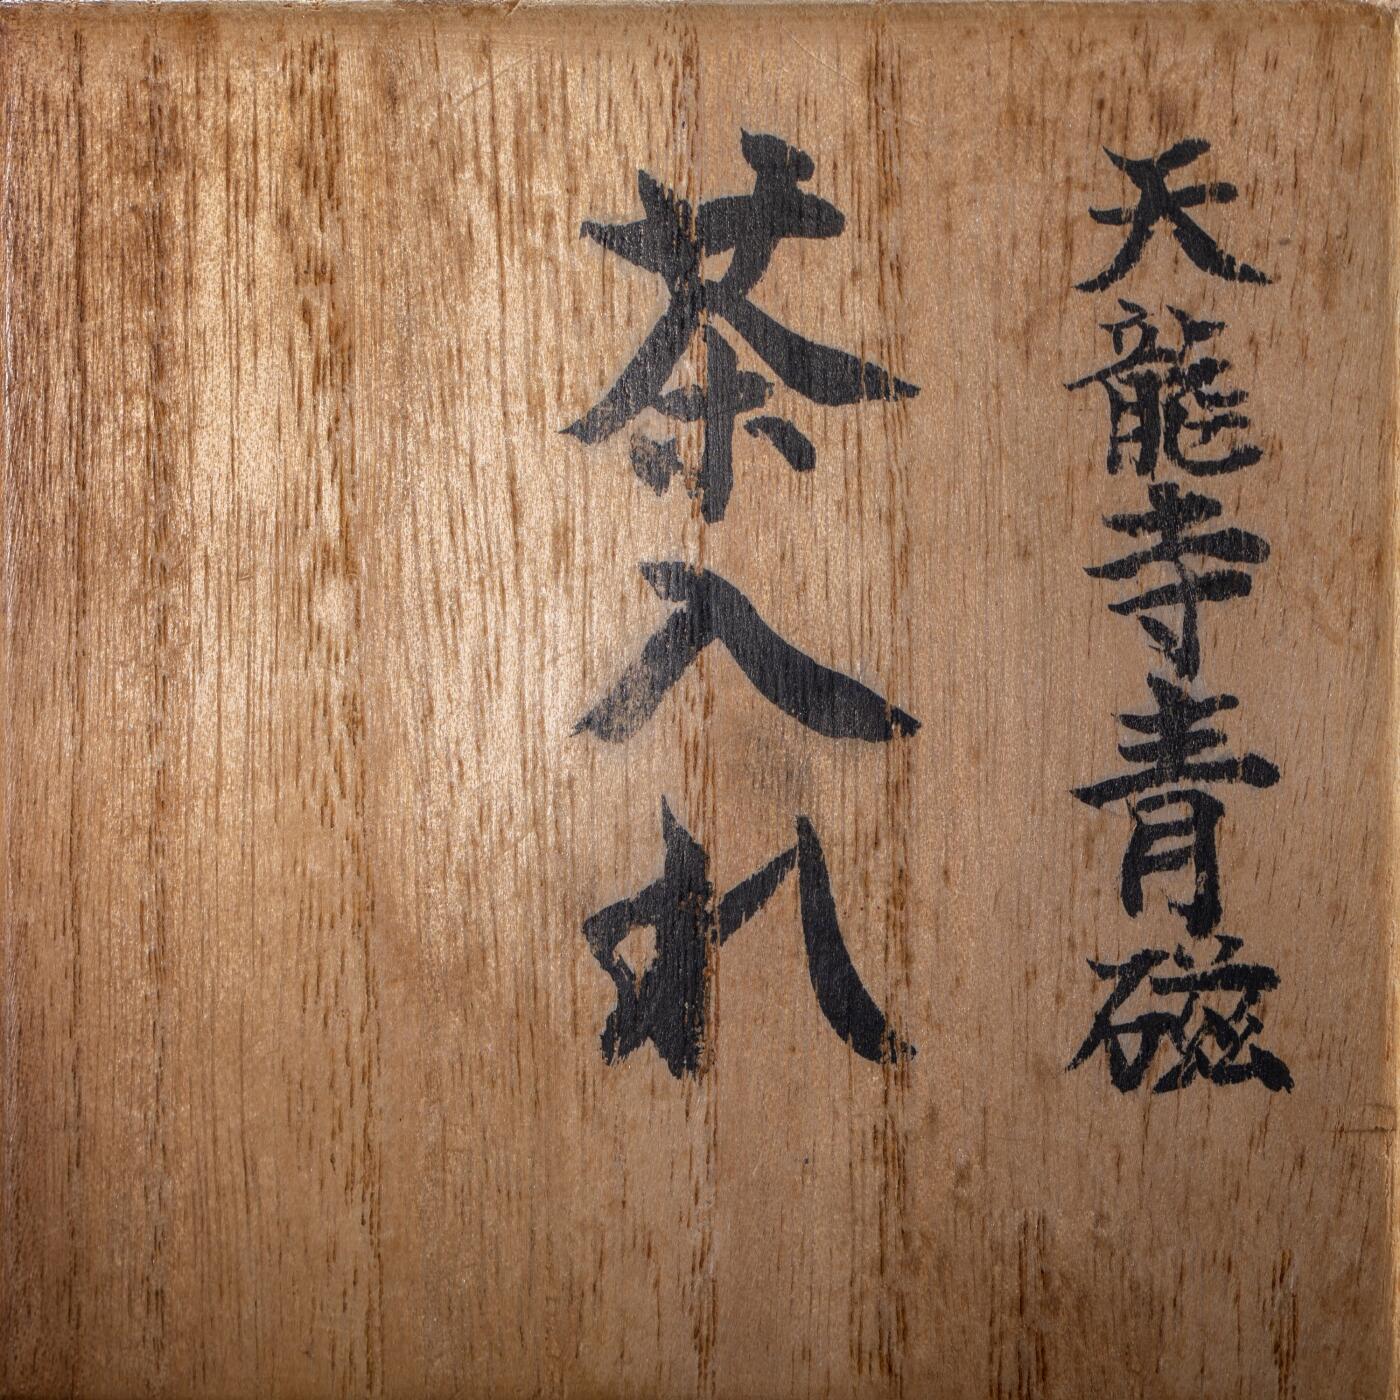 天龍寺青磁
茶入れ